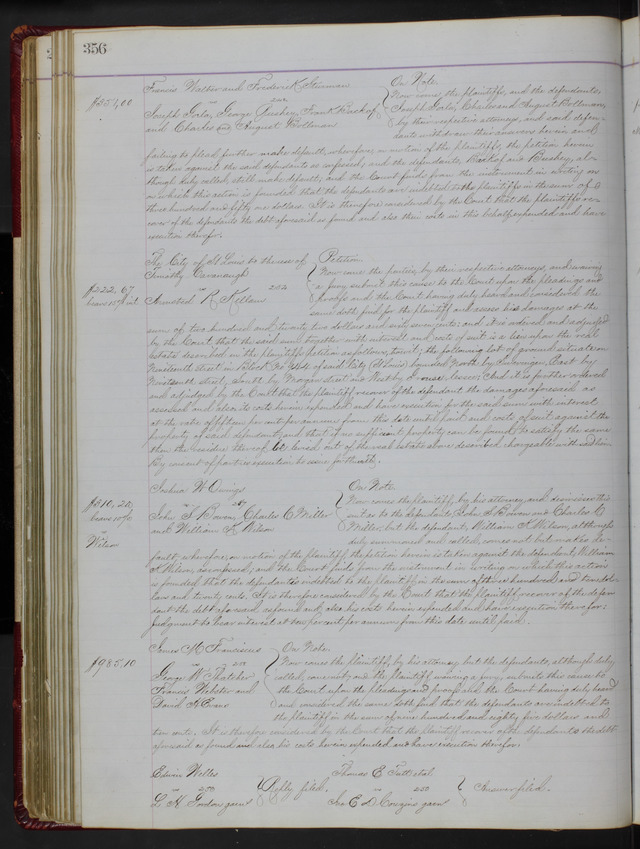 356
Francis Walter and Frederick On Note.
$251,00 vs Now come the plaintiffs, and the defendants,
Joseph Gola, George Bushey, Frank Bischof Joseph Gola, Charles and August Bollman,
and Charles and August Bollman by their respective attorneys, and said defen-
dants withdraw their answers herein, and
failing to plead further make default, wherefore, on motion of the plaintiffs, the petition herein
is taken against the said defendants as confessed; and the defendants, Bischof and Bushey, al-
though duly called, still make default; and the Court finds from the instrument in writing on
which this action is founded that the defendants are indebted to the plaintiffs in the sum of
two hundred and fifty one dollars. It is therefore considered by the Court that the plaintiffs re-
cover of the defendants the debt aforesaid as found and also their costs in this behalf expended and have
execution therefor.
The City of St Louis to the use of Petition
Timothy Cavanaugh Now come the parties, by their respective attorneys, and waiving
$222.67 vs a jury submit this cause to the Court upon the pleadings and
bears 15% int. Armsted R. Kellam proofs and the Court having duly heard and considered the
same doth find for the plaintiff and assess his damages at the
sum of two hundred and twenty two dollars and sixty seven cents; and it is ordered and adjudged
by the Court that the said sum together with interest and costs of suit is a lien upon the real
estate described in the plaintiffs petition as follows, towit; the following lot of ground situate on
Nineteenth street in Block No of said City (St Louis) bounded North by East by
Nineteenth street, South by Morgan street and West by And it is further ordered
and adjudged by the Court that the plaintiff recover of the defendant the damages aforesaid as
assessed and also its costs herein expended and have execution for the said sum with interest
at the rate of fifteen per cent per annum from this date until paid and costs of suit against the
property of said defendant, and that if no sufficient property can be found to satisfy the same
then the residue thereof be levied out of the real estate above described chargeable with said lien.
By consent of parties execution to issue forthwith.
Joshua W Owings On Note.
$310.20 vs Now comes the plaintiff, by his attorney, and dismisses this
bears 10% John S. Bowen, Charles C Miller suit as to the defendants, John S Bowen and Charles C
vs and William H. Wilson Miller, but the defendant, William H. Wilson, although
Wilson duly summoned and called, comes not but makes de-
fault; wherefore, on motion of the plaintiff, the petition herein is taken against the defendant, William
H. Wilson, as confessed; and the Court finds from the instrument in writing on which this action
is founded that the defendant is indebted to the plaintiff in the sum of three hundred and ten dol-
lars and twenty cents. It is therefore considered by the Court that the plaintiff recover of the defen-
dant the debt aforesaid as found and also his costs herein expended and have execution therefor:
judgment to bear interest at ten per cent per annum from this date until paid.
James M Franciscus On Note.
$985.10 vs Now comes the plaintiff, by his attorney but the defendants, although duly
George W Thatcher, called, come not; and the plaintiff waiving a jury, submits this cause to
Francis Webster and the Court upon the pleadings and proofs and the Court having duly heard
David H Evans and considered the same doth find that the defendants are indebted to
the plaintiff in the sum of nine hundred and eighty five dollars and
ten cents. It is therefore considered by the Court that the plaintiff recover of the defendants the debt
aforesaid as found and also his costs herein expended and have execution therefor.
Edwin Welles Thomas E Tutt et al
vs Reply filed. vs Answer filed.
L. H. Gordon garn Jno E D Couzins garn